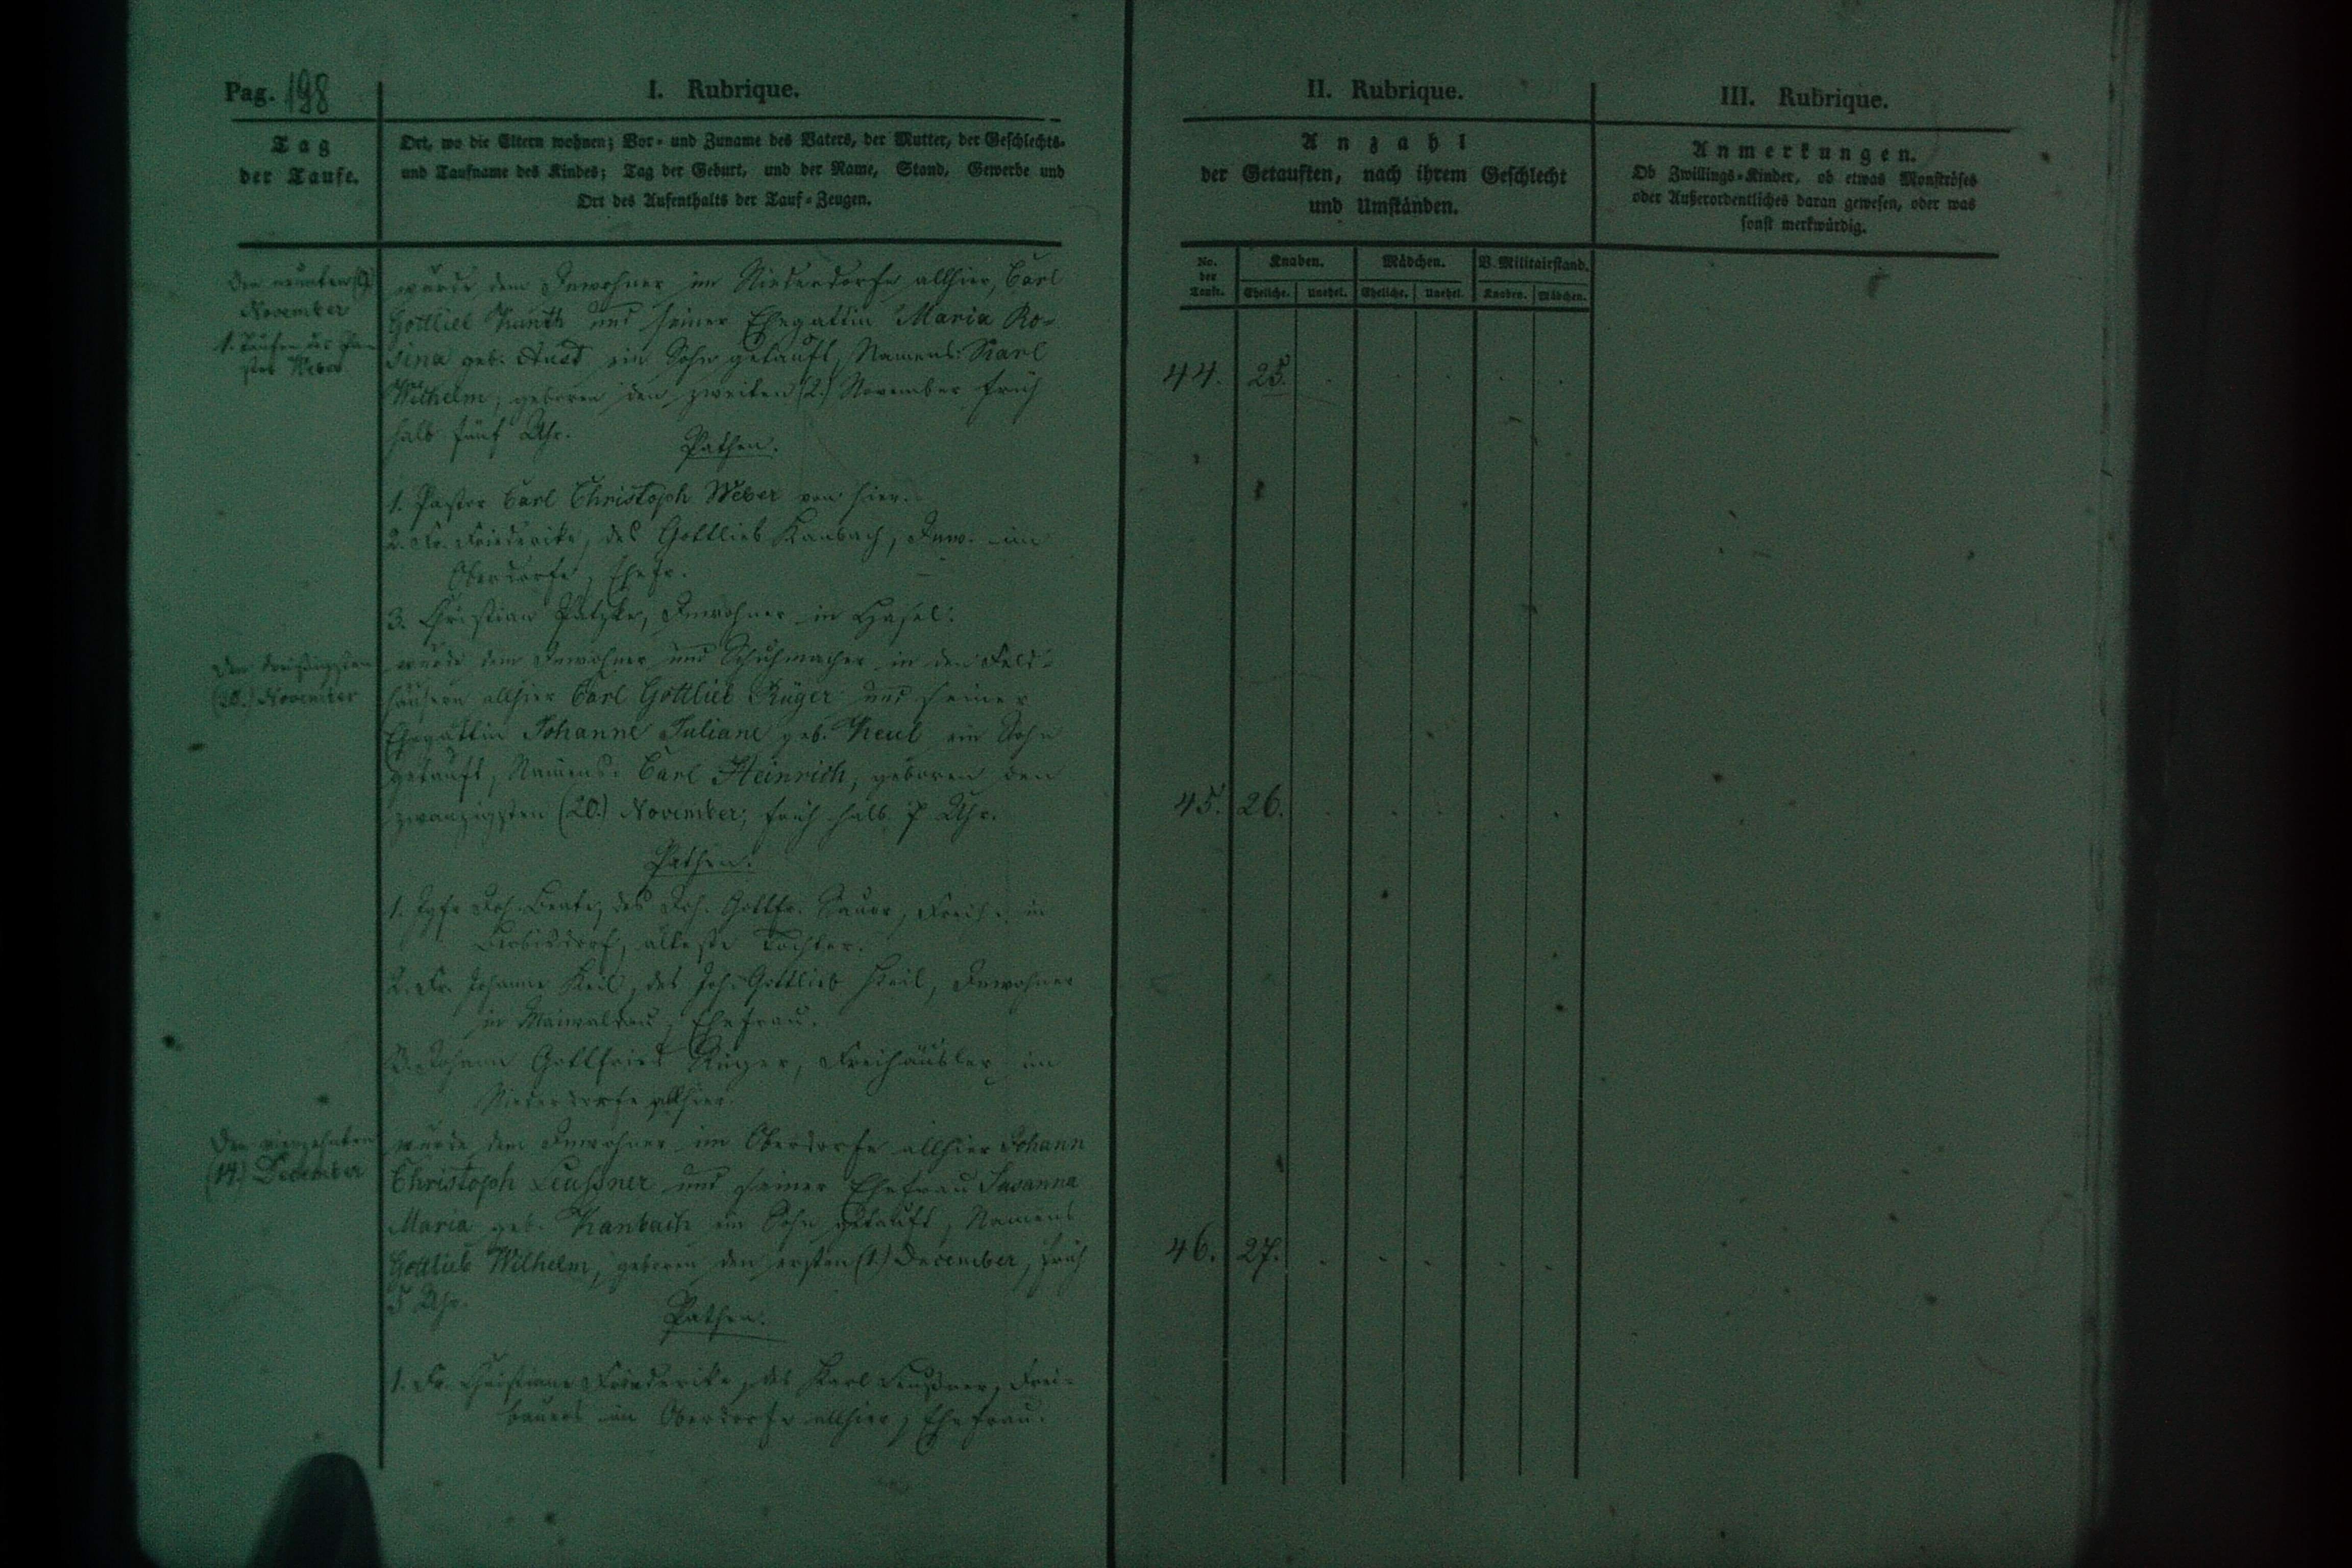 Pag. 198
I. Rubrique.
Tag
der Taufe.
Ort, wo die Eltern wohnen; Vor- und Zuname des Vaters, der Mutter, der Geschlechts-
und Taufname des Kindes; Tag der Geburt, und der Name, Stand, Gewerbe und
Ort des Aufenthalts der Tauf-Zeugen.
den neunten (9.)
November
wurde dem Inwohner im Niederdorfe allhier, Carl
Gottlieb Kunth und seiner Ehegattin Maria Ro-
sina geb. Aust ein Sohn getauft, Namens: Karl
Wilhelm, geboren den zweiten (2.) November früh
halb fünf Uhr.
Pathen.
1. Pastor Carl Christoph Weber von hier.
2. Fr. Friederike, des Gottlieb Kanbach, Inw. im
Oberdorfe, Ehefr.
3. Christian Patzke, Inwohner in Hasel.
den dreißigsten
(30.) November
wurde dem Inwohner und Schuhmacher in den Feld-
häusern allhier Carl Gottlieb Rüger und seiner
Ehegattin Johanne Juliane geb. Keul ein Sohn
getauft, Namens: Carl Heinrich, geboren den
zwanzigsten (20.) November, früh halb 7 Uhr.
Pathen.
1. Jgfr. Joh. Beate, des Joh. Gottfr. Sauer, Freih. in
älteste Tochter.
2. Fr. Johanne Keil, des Joh. Gottlieb Keil, Inwohner
in Maiwaldau, Ehefrau.
3. Johann Gottfried Rüger, Freihäusler im
Niederdorfe allhier.
den vierzehnten
(14.) December
wurde dem Inwohner im Oberdorfe allhier Johann
Christoph Leussner und seiner Ehefrau Susanna
Maria geb. Kanbach ein Sohn getauft, Namens
Gottlieb Wilhelm, geboren den ersten (1.) December, früh
5 Uhr.
Pathen.
1. Fr. Christiane Friederike, des Karl Leußner, Frei-
bauers im Oberdorfe allhier, Ehefrau.
II. Rubrique.
Anzahl
der Getauften, nach ihrem Geschlecht
und Umständen.
No.
der
Taufe.
Knaben.
Mädchen.
V. Militairstand.
Eheliche. Unehel. Eheliche. Unehel. Knaben. Mädchen.
44. 25.
45. 26.
46. 27.
III. Rubrique.
Anmerkungen.
Ob Zwillings-Kinder, ob etwas Monströses
oder Außerordentliches daran gewesen, oder was
sonst merkwürdig.